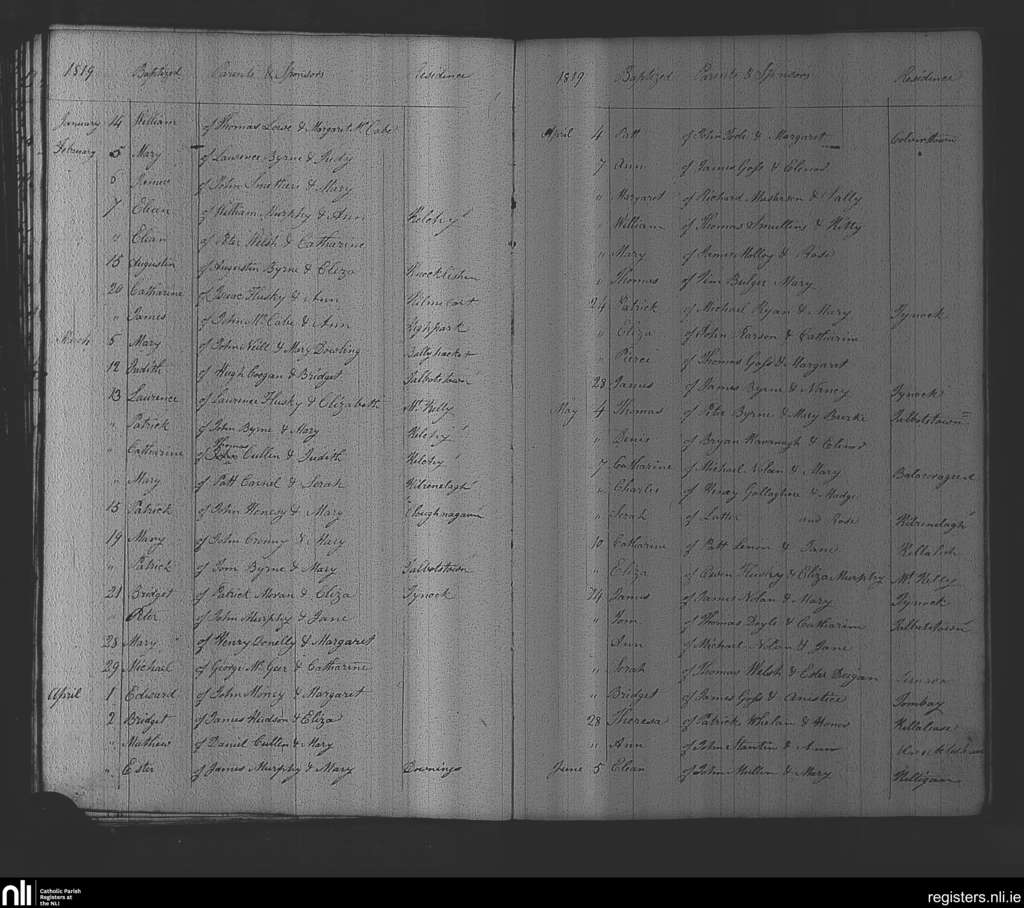 1819 Baptized Parents & Sponsors Residence
January 14 William of Thomas Lowe & Margaret McCabe
February 5 Mary of Laurence Byrne & Judy
6 of John Smithers & Mary
7 Elien of William Murphy & Ann Kelshy
" Elian of Peter Welsh & Catharine
15 Augustin of Augustin Byrne & Eliza Knocklishen
20 Catharine of Isaac Husky & Ann
" James of John McCabe & Ann Highpark
March 5 Mary of John Neill & Mary Dowling Ballyhacket
12 Judith of Hugh Coogan & Bridget Talbotstown
13 Laurence of Laurence Husky & Elizabeth Mt Kelly
" Patrick of John Byrne & Mary Kelshy
" Catharine of Thomas Cullen & Judith Kelshy
" Mary of Patt & Sarah Kilranelagh
15 Patrick of John & Mary Cloughnagaun
19 Mary of John & Mary
" Patrick of Tom Byrne & Mary Talbotstown
21 Bridget of Patrick Moran & Eliza Tynock
" Peter of John Murphy & Jane
28 Mary of Henry Donelly & Margaret
29 Michael of George McGeer & Catharine
April 1 Edward of John Money & Margaret
2 Bridget of James Hudson & Eliza
" Mathew of Daniel Cullen & Mary
" Ester of James Murphy & Mary Downings
1819 Baptized Parents & Sponsors Residence
April 4 Patt of John & Margaret
7 Ann of James Goss & Elenor
" Margaret of Richard & Sally
" William of Thomas & Kitty
" Mary of James Molloy & Rose
" Thomas of Wm Bulger Mary
24 Patrick of Michael Ryan & Mary Tynock
" Eliza of John & Catharine
" Pierce of Thomas Goss & Margaret
28 James of James Byrne & Nancy Tynock
May 4 Thomas of Peter Byrne & Mary Burke Talbotstown
" Denis of Bryan Kavanagh & Elenor
7 Catharine of Michael Nolan & Mary
" Charles of Henry Gallagher & Madge
" Sarah of and Rose Kilranelagh
10 Catharine of Patt Lenon & Jane Killalish
" Eliza of Owen & Eliza Murphy Mt Kelly
24 James of James Nolan & Mary Tynock
" Tom of Thomas Doyle & Catharine Talbotstown
Ann of Michael Nolan & Jane
" Sarah of Thomas Welsh & Ester
" Bridget of James Goss & Anistice Tombay
28 Theresa of Patrick Whelan & Honor
" Ann of John & Ann
June 5 Elean of John Mullen & Mary
nli Catholic Parish Registers at the NLI
registers.nli.ie